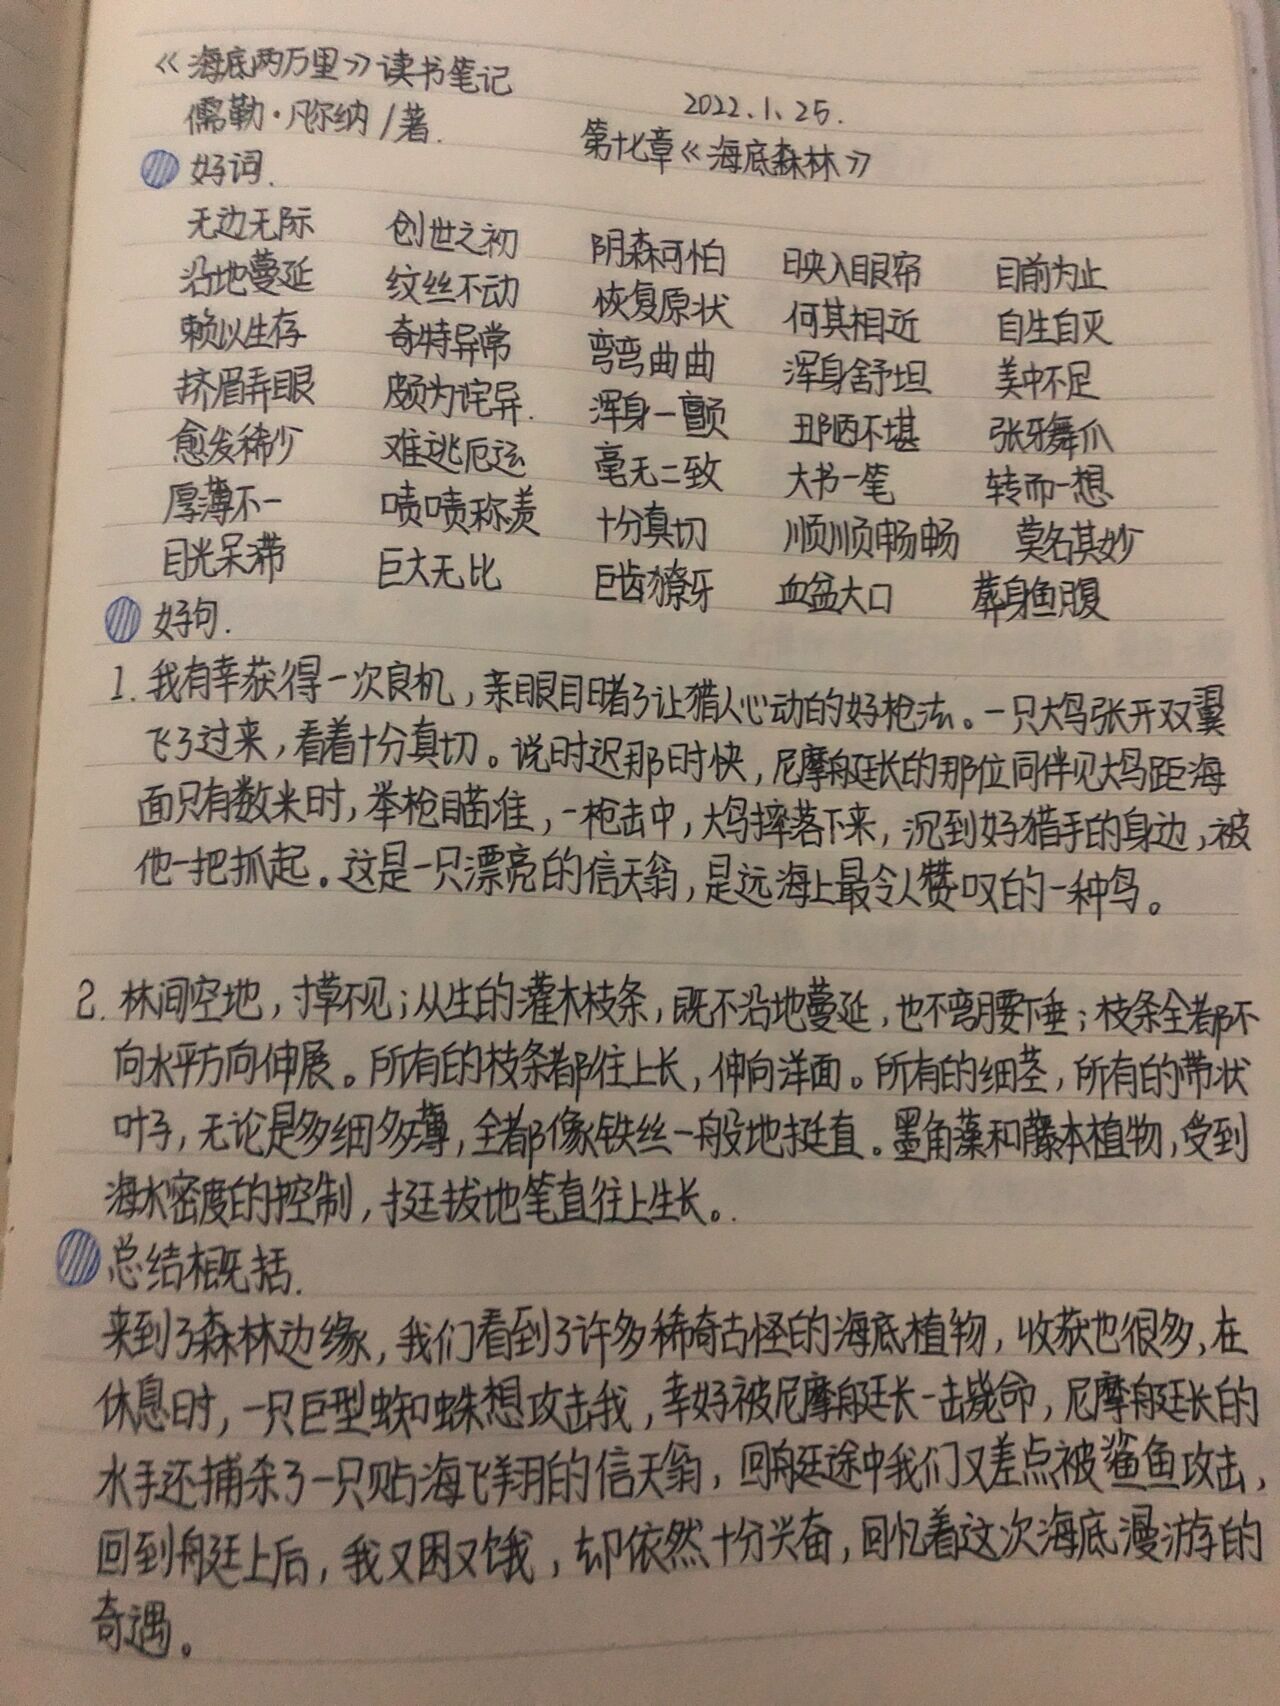 《海底两万里》读书笔记
儒勒·凡尔纳/著.
2022.1.25.
第十七章《海底森林》
好词.
无边无际 创世之初 阴森可怕 映入眼帘 目前为止
沿地蔓延 纹丝不动 恢复原状 何其相近 自生自灭
赖以生存 奇特异常 弯弯曲曲 浑身舒坦 美中不足
挤眉弄眼 颇为诧异. 浑身一颤 丑陋不堪 张牙舞爪
愈发稀少 难逃厄运 毫无二致 大书一笔 转而一想
厚薄不一 啧啧称羡 十分真切 顺顺畅畅 莫名其妙
目光呆滞 巨大无比 巨齿獠牙 血盆大口 葬身鱼腹
好句.
1. 我有幸获得一次良机，亲眼目睹了让猎人心动的好枪法。一只大鸟张开双翼
飞了过来，看着十分真切。说时迟那时快，尼摩艇长的那位同伴见大鸟距海
面只有数米时，举枪瞄准，一枪击中，大鸟摔落下来，沉到好猎手的身边，被
他一把抓起。这是一只漂亮的信天翁，是远海上最令人赞叹的一种鸟。
2. 林间空地，寸草不见；从生的灌木枝条，既不沿地蔓延，也不弯腰下垂；枝条全都不
向水平方向伸展。所有的枝条都往上长，伸向洋面。所有的细茎，所有的带状
叶子，无论是多细多薄，全都像铁丝一般地挺直。墨角藻和藤本植物，受到
海水密度的控制，挺拔地笔直往上生长。.
总结概括.
来到了森林边缘，我们看到了许多稀奇古怪的海底植物，收获也很多，在
休息时，一只巨型蜘蛛想攻击我，幸好被尼摩艇长一击毙命，尼摩艇长的
水手还捕杀了一只贴海飞翔的信天翁，回艇途中我们又差点被鲨鱼攻击，
回到艇上后，我又困又饿，却依然十分兴奋，回忆着这次海底漫游的
奇遇。